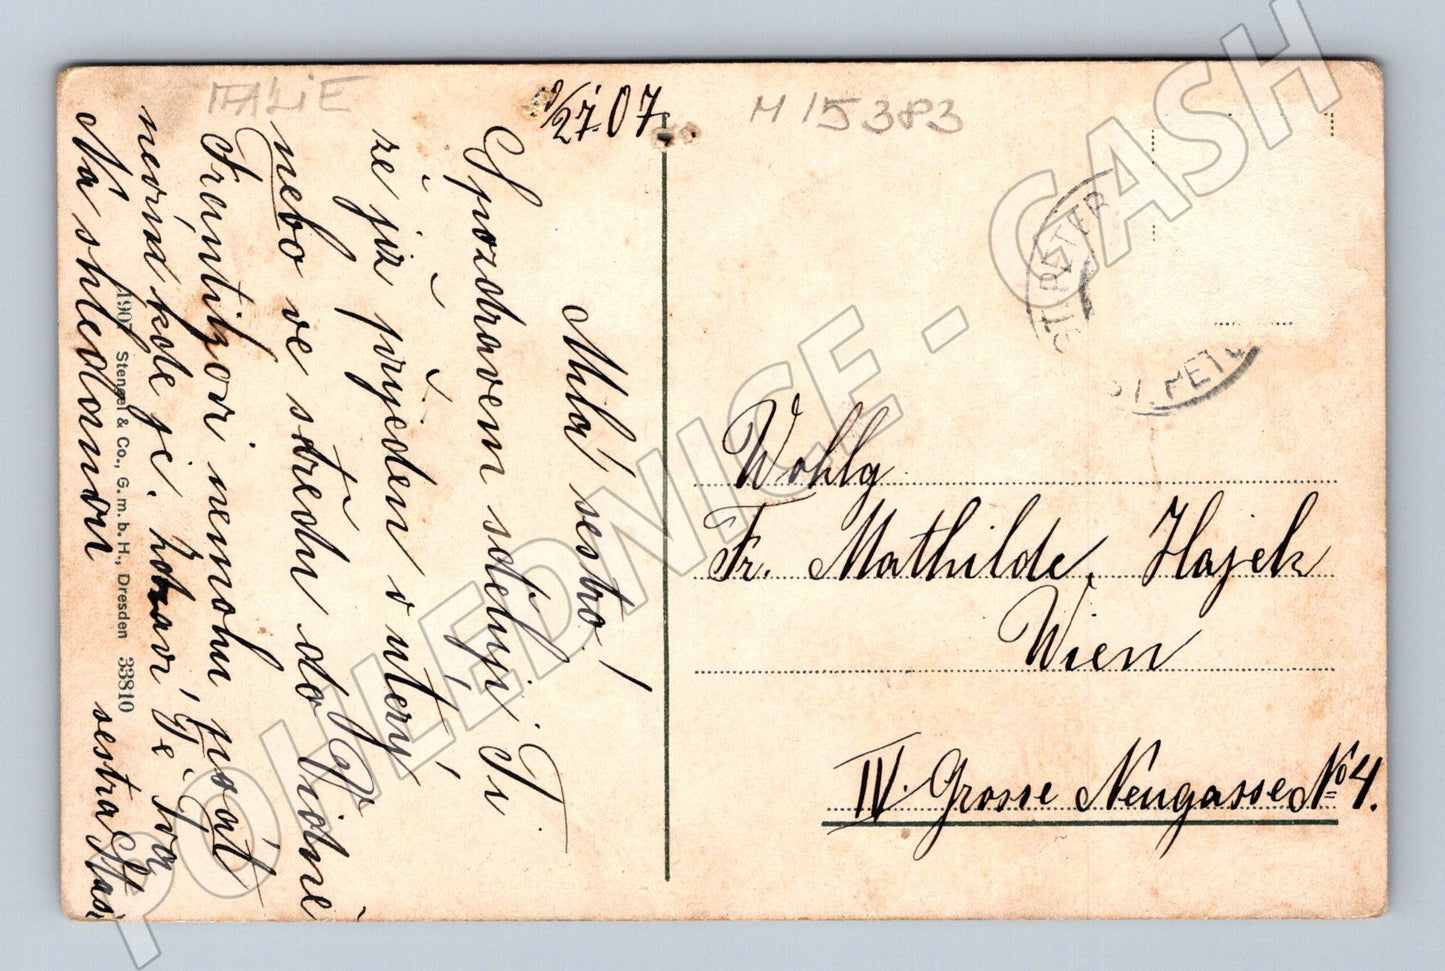 ITALIE
27. 07.
M 15383
Milá sestro!
Spozdravem sděluji Ti
že již přijeden v uterý
nebo ve středu do Vídně
Frantizovi nemohu psát
nevím kde je. Zdraví Tě Tvá
Na shledanou
sestra
1907 Stengel & Co., G. m. b. H., Dresden 33810
ST. PETER
ST. PETE
Wohlg
Fr. Mathilde Hajek
Wien
IV. Grosse Neugasse No 4.
POHLEDNICE - CASH